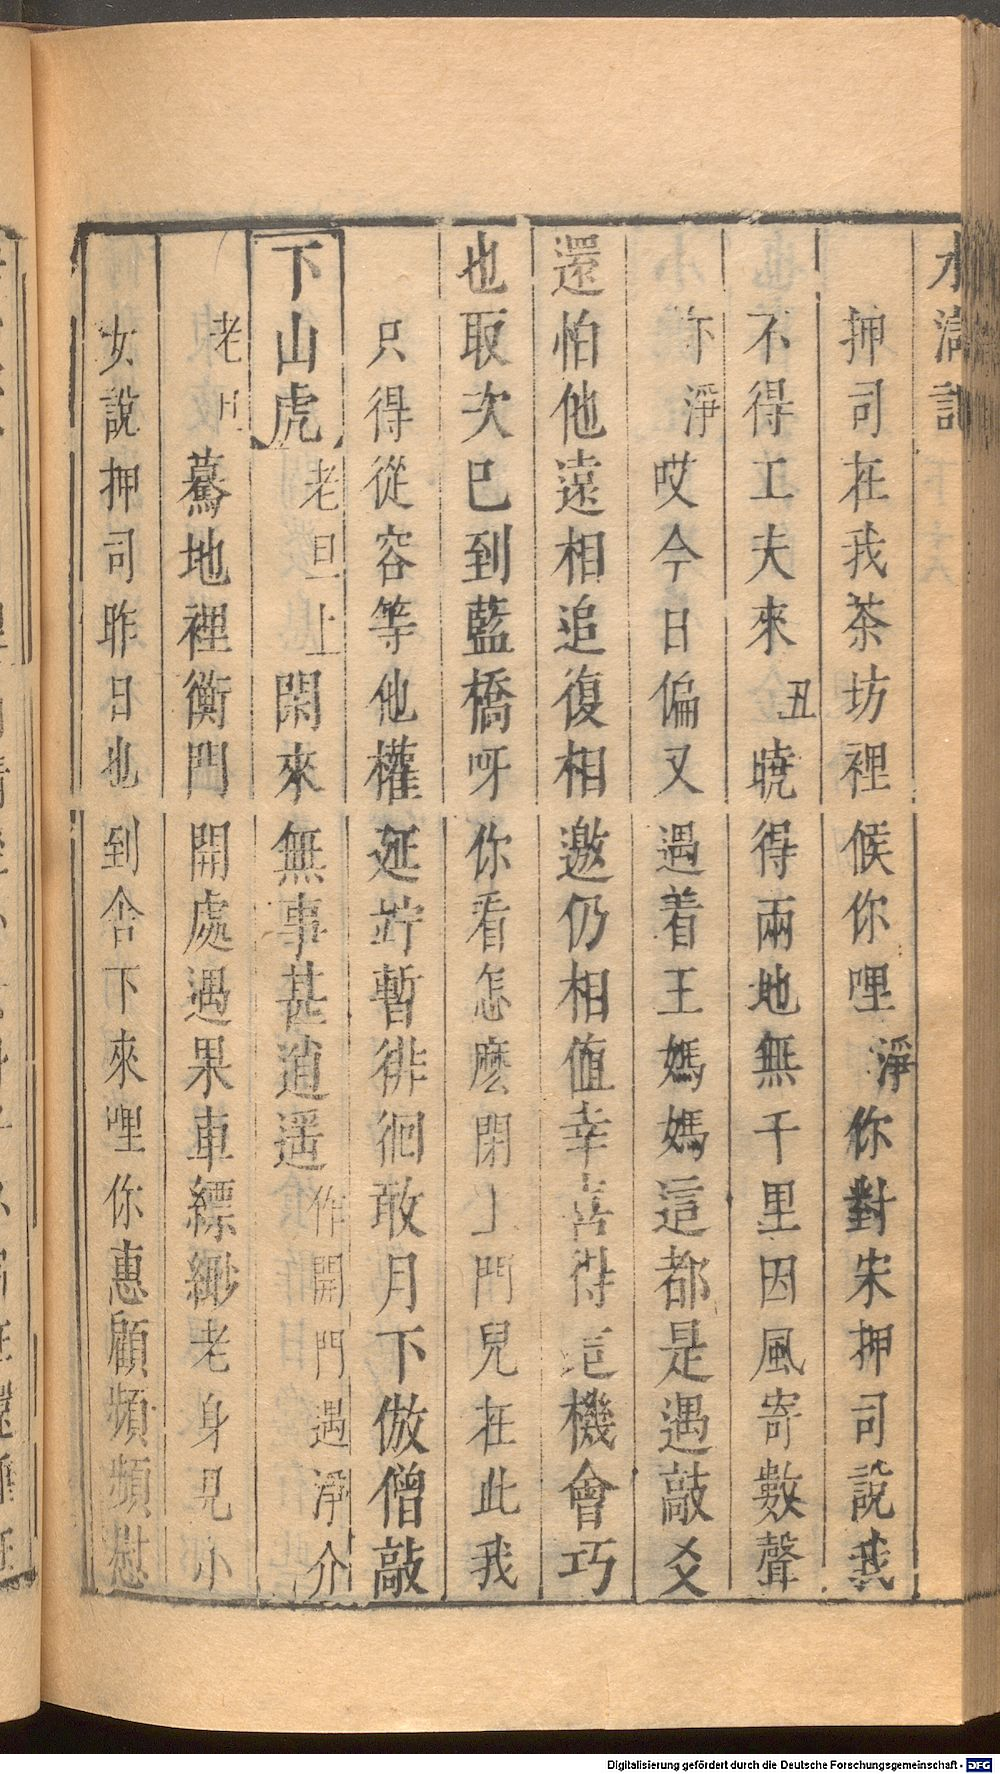 水滸記
押司在我茶坊裡候你哩淨你對宋押司說我
不得工夫來丑曉得兩地無千里因風寄數聲
下淨哎今日偏又遇着王媽媽這都是遇敲爻
還怕他遠相追復相邀仍相值幸喜得這機會巧
也取次已到藍橋呀你看怎麽閉上門兒在此我
只得從容等他權延竚暫徘徊敢月下倣僧敲
下山虎老旦上閑來無事甚逍遥作開門遇淨介
老旦驀地裡衡門開處遇果車縹緲老身見小
女說押司昨日也到舍下來哩你惠顧頻頻慰
Digitalisierung gefördert durch die Deutsche Forschungsgemeinschaft - DFG